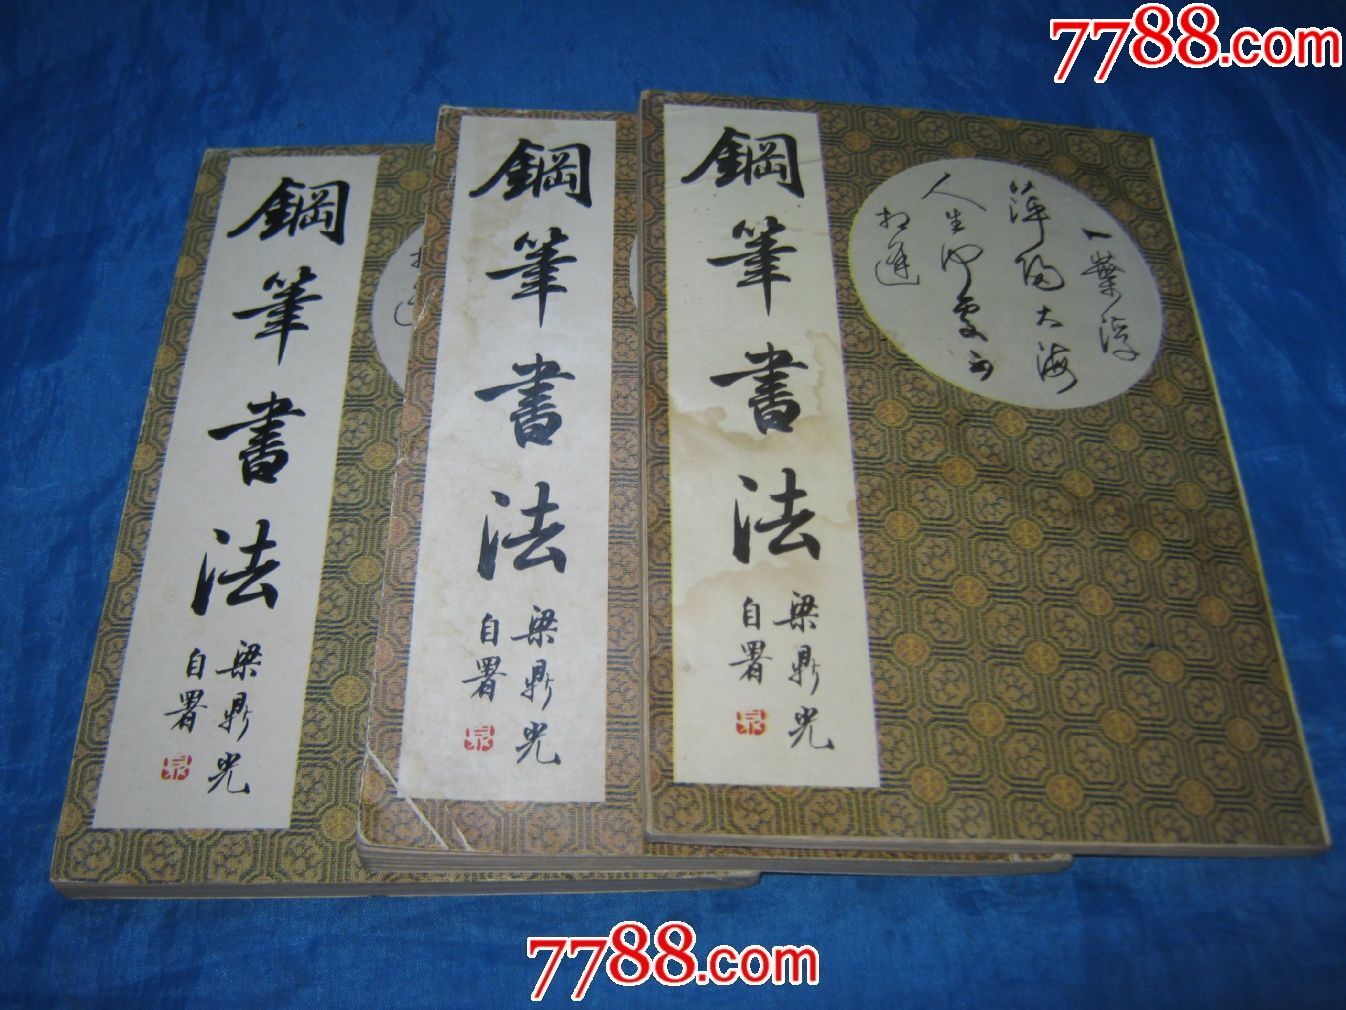 7788.com
鋼筆書法
梁鼎光
自署
鋼筆書法
梁鼎光
自署
鋼筆書法
梁鼎光
自署
一葉浮
萍歸大海
人生何處不
相逢
相逢
7788.com